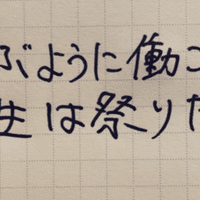 ぶように働こ
生は祭りだ